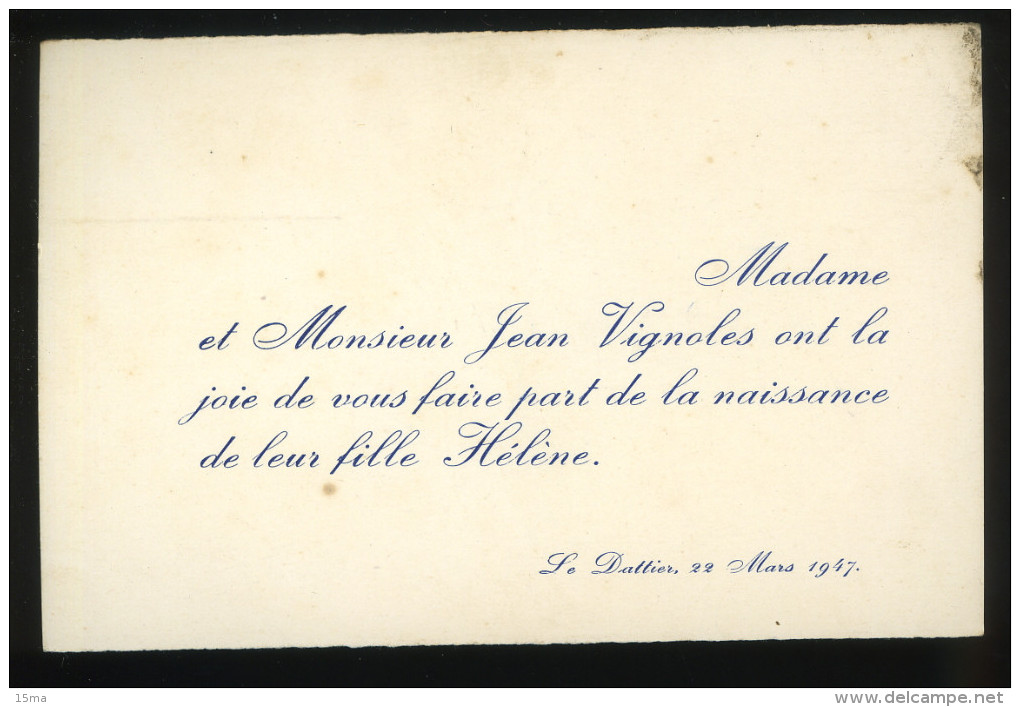 Madame
et Monsieur Jean Vignoles ont la
joie de vous faire part de la naissance
de leur fille Hélène.
Le Dattier, 22 Mars 1947.
15ma
www.delcampe.net